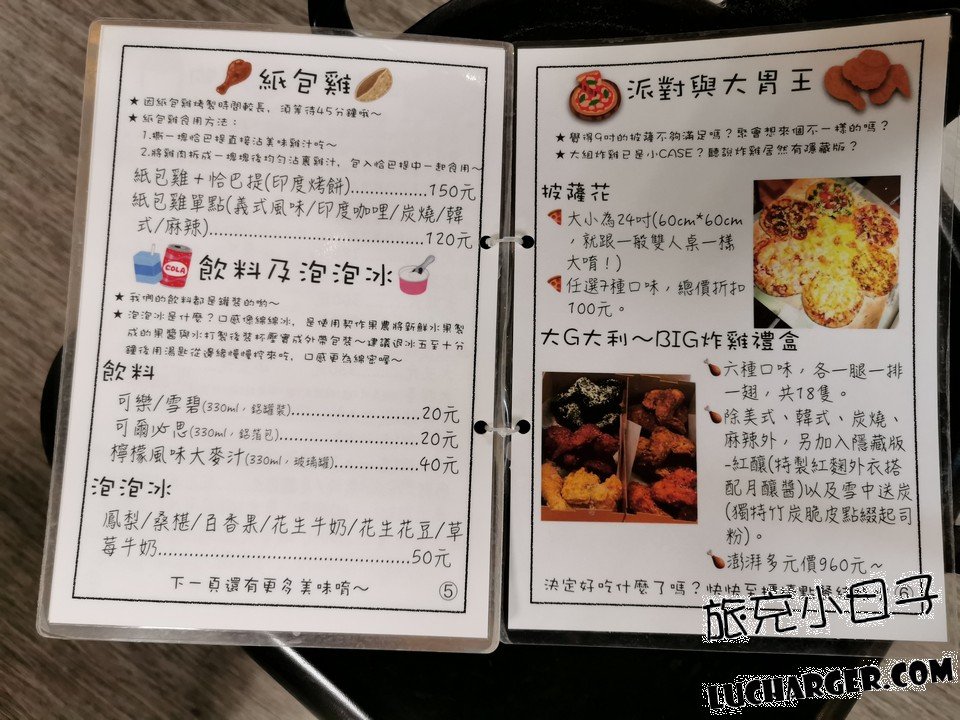 紙包雞
★ 因紙包雞烤製時間較長，須等待45分鐘哦～
★ 紙包雞食用方法：
1.撕一塊恰巴提直接沾美味雞汁吃～
2.將雞肉拆成一塊塊後均勻沾裹雞汁，包入恰巴提中一起食用～
紙包雞＋恰巴提(印度烤餅)..............150元
紙包雞單點(義式風味/印度咖哩/炭燒/韓
式/麻辣)........................................120元
COLA
飲料及泡泡冰
★ 我們的飲料都是罐裝的喲～
★ 泡泡冰是什麼？口感像綿綿冰，是使用契作果農將新鮮水果製
成的果醬與水打製後裝杯壓實成外帶包裝～建議退冰五至十分
鐘後用湯匙從邊緣慢慢挖來吃，口感更為綿密喔～
飲料
可樂/雪碧(330ml，鋁罐裝)........................20元
可爾必思(330ml，鋁箔包)..........................20元
檸檬風味大麥汁(330ml，玻璃罐)................40元
泡泡冰
鳳梨/桑椹/百香果/花生牛奶/花生花豆/草
莓牛奶..............................................50元
下一頁還有更多美味唷～
⑤
派對與大胃王
★ 覺得9吋的披薩不夠滿足嗎？聚會想來個不一樣的嗎？
★ 大組炸雞已是小CASE？聽說炸雞居然有隱藏版？
披薩花
大小為24吋(60cm*60cm
，就跟一般雙人桌一樣
大唷！)
任選7種口味，總價折扣
100元。
大G大利～BIG炸雞禮盒
六種口味，各一腿一排
一翅，共18隻。
除美式、韓式、炭燒、
麻辣外，另加入隱藏版
-紅釀(特製紅麴外衣搭
配月釀醬)以及雪中送炭
(獨特竹炭脆皮點綴起司
粉)。
澎湃多元價960元～
決定好吃什麼了嗎？快快至櫃檯點餐
⑥
旅充小日子
LUCHARGER.COM